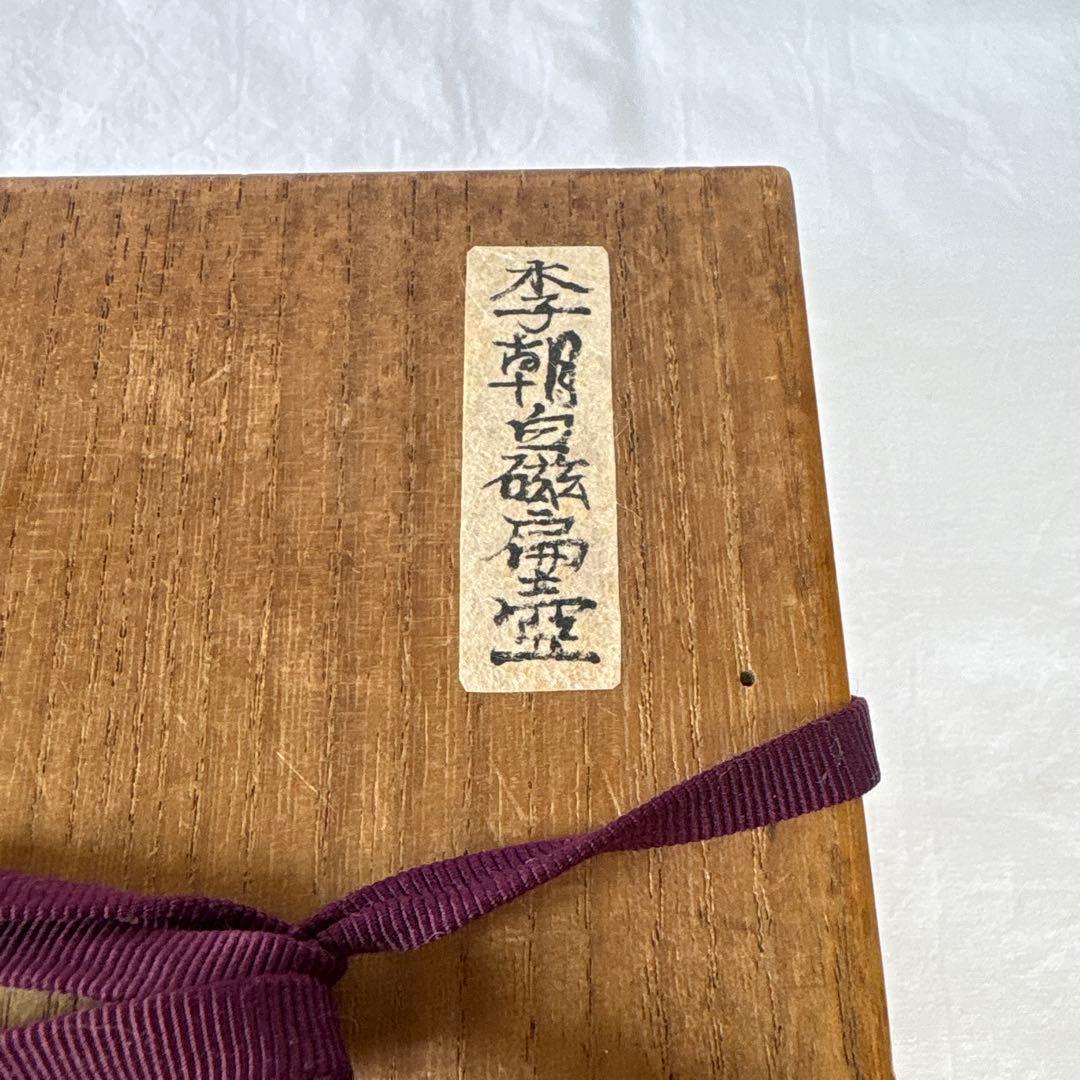 李朝白磁扁壺